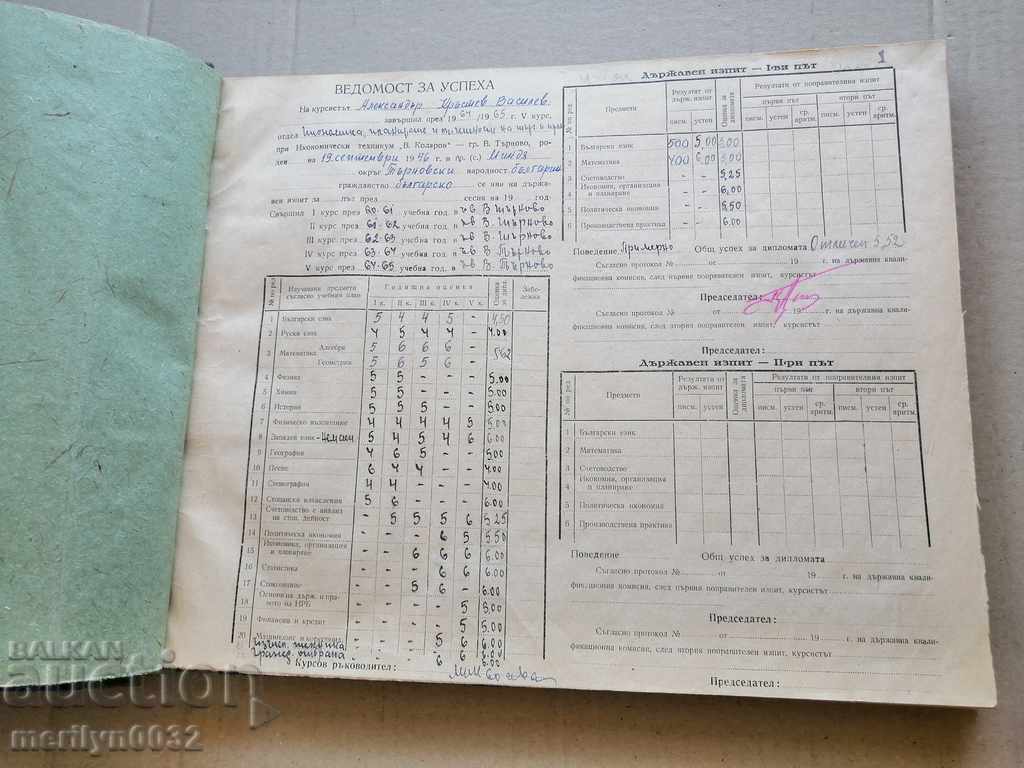 ВЕДОМОСТ ЗА УСПЕХА
На курсистът Александър Василев
завършил през 1964/1965 г. V курс,
отдел
при Икономически техникум „В. Коларов" — гр. В. Търново, ро-
ден на 19 септември 1946 г. в гр. (с.) Миндя
окръг Търновски народност българин
гражданство българско се яви на държа-
вен изпит за път през сесия на 19 год.
Свършил I курс през 60-61 учебна год. в гр. В. Търново
II курс през 61-62 учебна год. в гр. В. Търново
III курс през 62-63 учебна год. в гр. В. Търново
IV курс през 63-64 учебна год. в гр. В. Търново
V курс през 64-65 учебна год. в гр. В. Търново
№ по ред Изучавани предмети съгласно учебния план Годишна оценка Оценка за дипл. Забележка
I к. II к. III к. IV к. V к.
1 Български език 5 4 4 5 - 4,50
2 Руски език 4 5 4 4 - 4.00
3 Математика Алгебра 5 6 6 6 - 5.62
Геометрия 5 6 5 6 -
4 Физика 5 5 - - - 5.00
5 Химия 5 5 - - - 5.00
6 История 5 5 5 - - 5.00
7 Физическо възпитание 4 4 4 4 5 5.00
8 Западен език - Немски 5 4 5 4 6 6.00
9 География 4 6 5 - - 5.00
10 Пеене 6 4 4 - - 4.00
11 Стенография 4 4 - - - 4.00
12 Стопански изчисления 5 6 - - - 6.00
13 Счетоводство с анализ на стоп. дейност - 5 5 5 6 5.25
14 Политическа икономия - - - 6 5 5.50
15 Икономика, организация и планиране - - 6 6 6 6.00
16 Статистика - - - 6 6 6.00
17 Стокознание - - 5 6 - 6.00
18 Основи на държ. и правото на НРБ - - - - 5 5.00
19 Финанси и кредит - - - - 5 5.00
20 - - - 5 6 6.00
Гражд. отбрана - - - 6 6 6.00
Курсов ръководител:
1
Държавен изпит — I-ви път
№ по ред Предмети Резултат от държ. изпит Оценка за дипломата Резултати от поправителния изпит
първи път втори път
писм. устен писм. устен ср. аритм. писм. устен ср. аритм.
1 Български език 500 5,00 5,00
2 Математика 400 6,00 5,00
3 Счетоводство - - 5,25
4 Икономия, организация и планиране - - 6,00
5 Политическа икономия - - 5,50
6 Производствена практика - - 6.00
Поведение Примерно Общ успех за дипломата Отличен 5,52
Съгласно протокол № от 19 г. на държавна квали-
фикационна комисия, след първия поправителен изпит, курсистът
Председател:
Съгласно протокол № от 19 г. на държавна квали-
фикационна комисия, след втория поправителен изпит, курсистът
Председател:
Държавен изпит — II-ри път
№ по ред Предмети Резултати от държ. изпит Оценка за дипломата Резултати от поправителния изпит
първи път втори път
писм. устен писм. устен ср. аритм. писм. устен ср. аритм.
1 Български език
2 Математика
3 Счетоводство
4 Икономия, организация и планиране
5 Политическа икономия
6 Производствена практика
Поведение Общ успех за дипломата
Съгласно протокол № от 19 г. на държавна квали-
фикационна комисия, след първия поправителен изпит, курсистът
Председател:
Съгласно протокол № от 19 г. на държавна квали-
фикационна комисия, след втория поправителен изпит, курсистът
Председател:
BALKAN
auction
merilyn0032